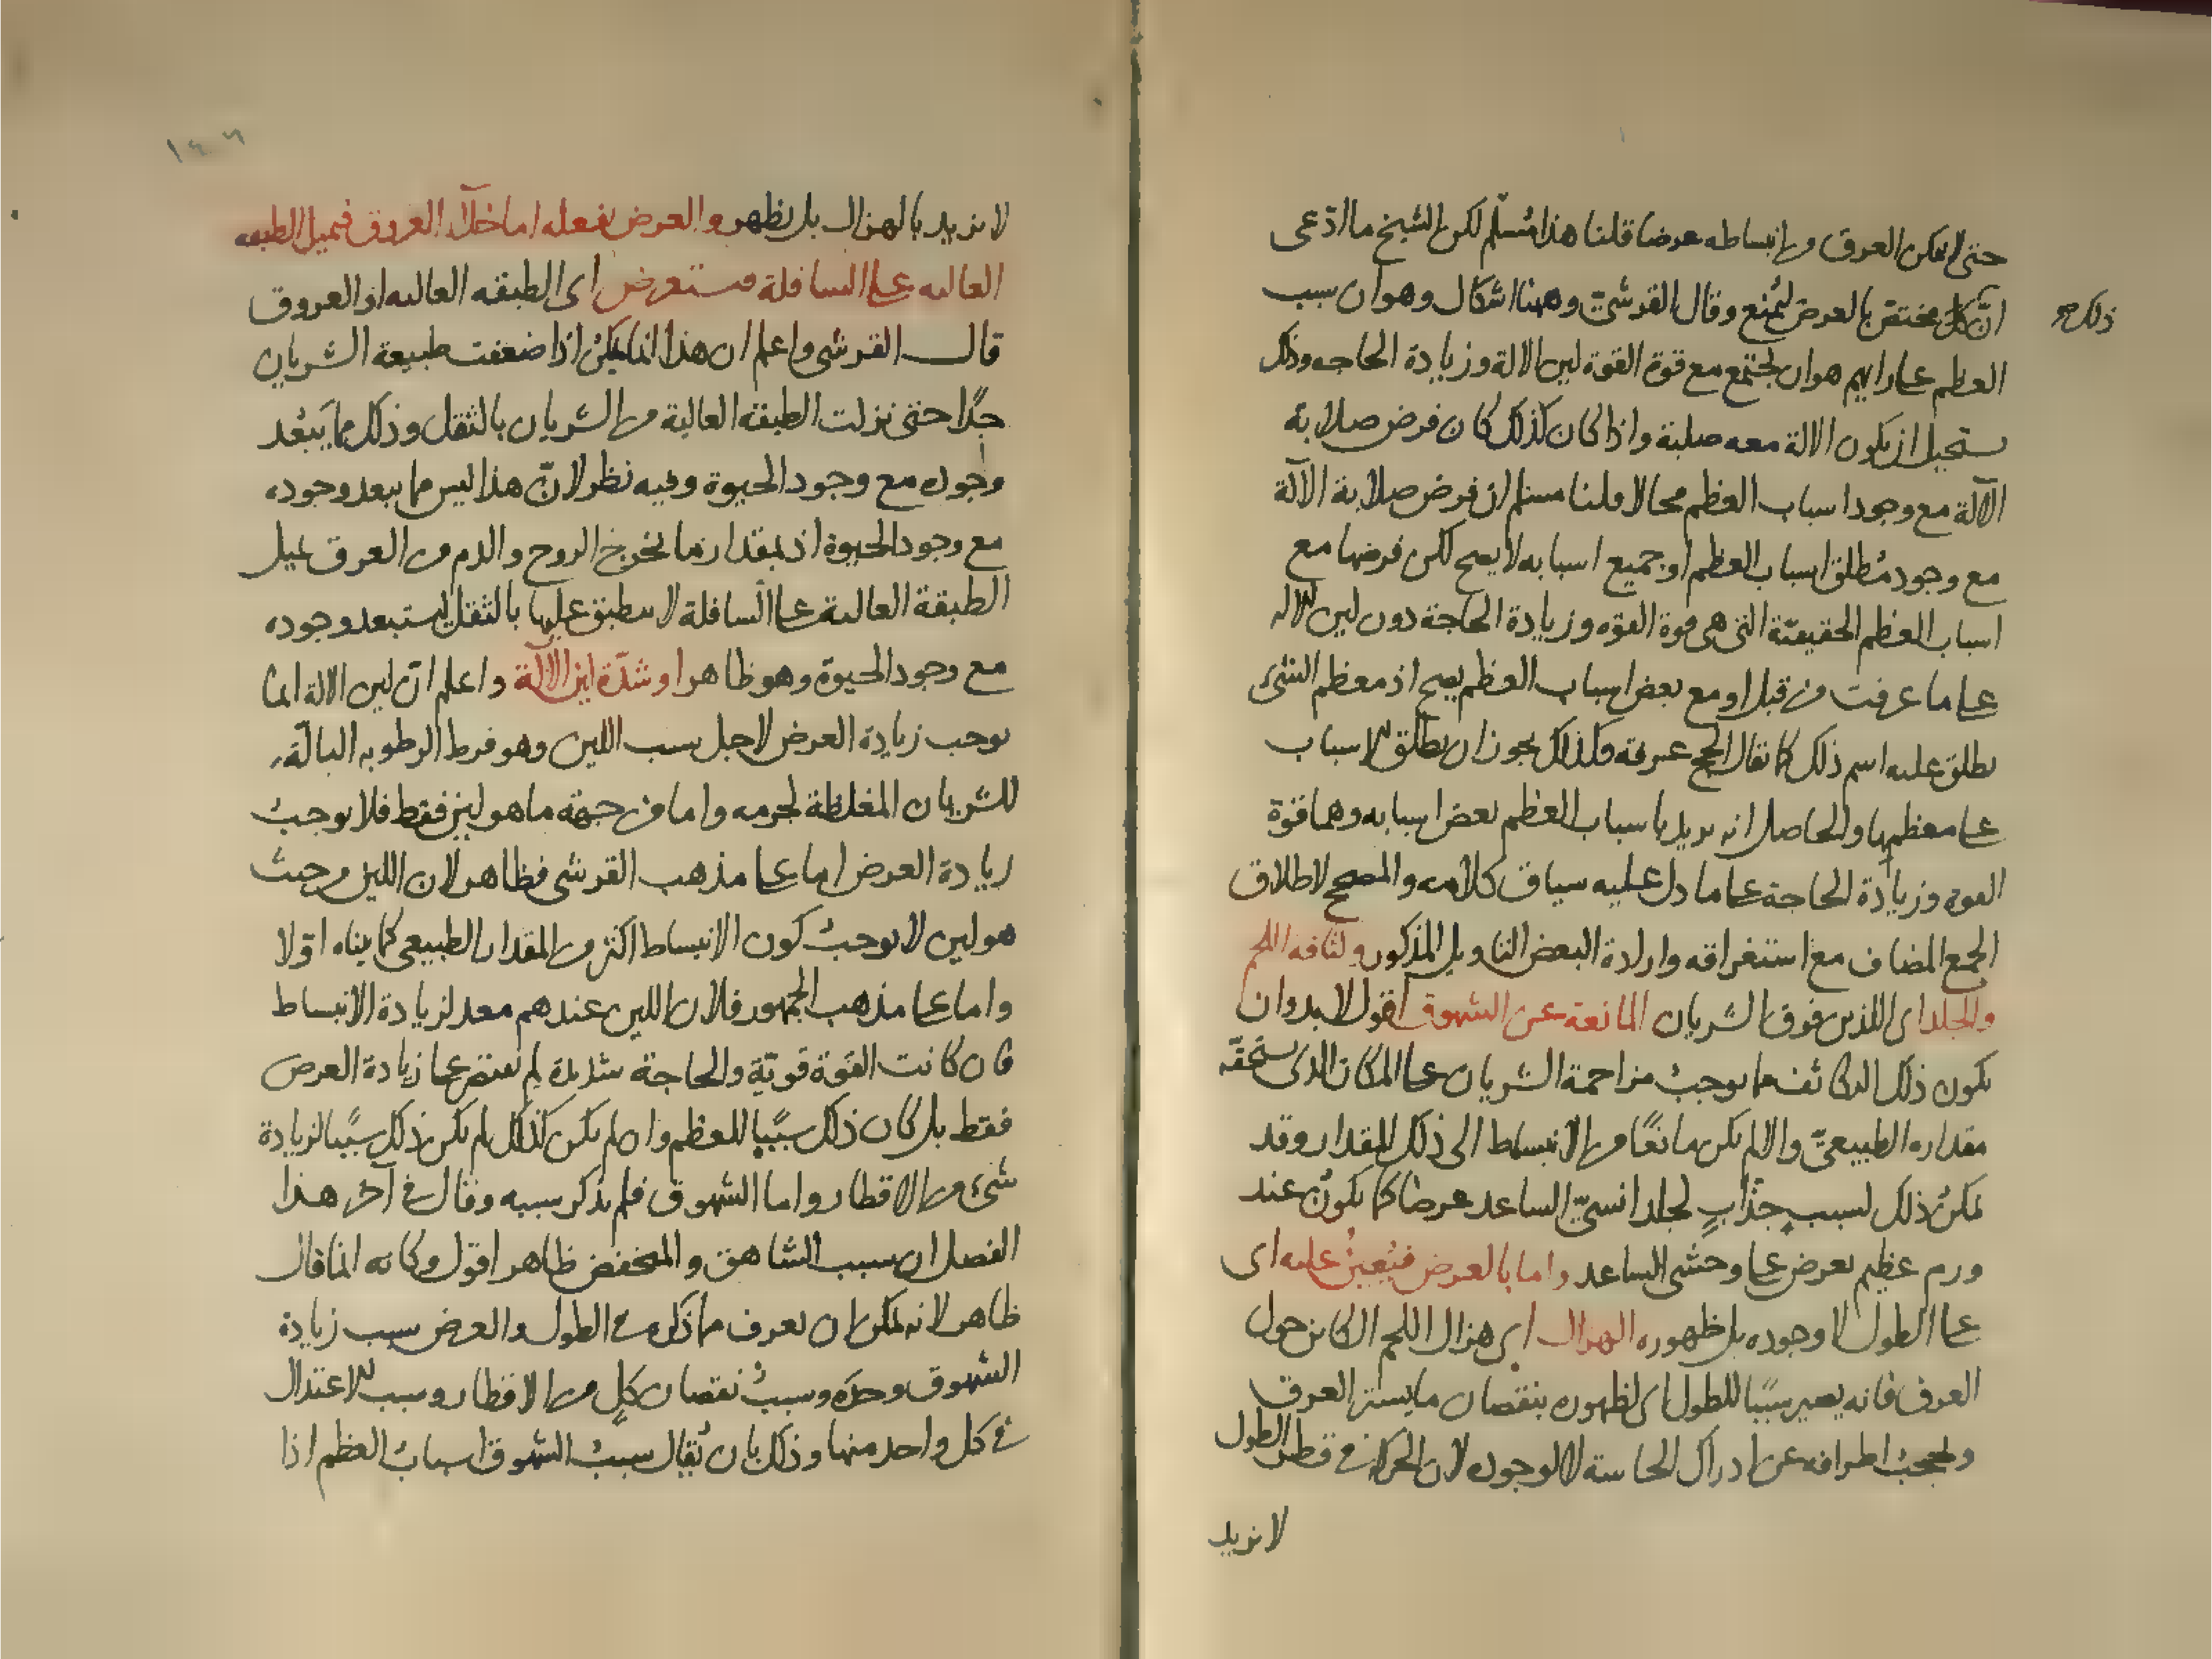 حتى لا يمكن العرق من انبساطه عرضا قلنا هذا مسلم لكن الشيخ ما ادعى
ان كل مختص بالعرض ليمنع وقال القرشي وههنا اشكال وهو ان سبب
ذلك صح
العظم على رايهم هو ان يجتمع مع قوة القوة لين الالة وزيادة الحاجه وذلك
يستحيل ان يكون الالة معه صلبة واذا كان كذلك كان فرض صلابة
الآلة مع وجود اسباب العظم محالا قلنا مسلم ان فرض صلابة الآلة
مع وجود مُطلق اسباب العظم او جميع اسبابه لا يصح لكن فرضها مع
اسباب العظم الحقيقيّة التي هي قوة القوه وزيادة الحاجة دون لين الاله
على ما عرفت من قبل او مع بعض اسباب العظم يصح اذ معظم الشئ
يطلق عليه اسم ذلك كما يقال الحج عرفه وكذلك يجوز ان يطلق الاسباب
على معظمها والحاصل انه يريد باسباب العظم بعض اسبابه وهما قوة
القوه وزيادة الحاجة على ما دل عليه سياق كلامه والمصحح لاطلاق
الجمع المضاف مع استغراقه وارادة البعض التاويل المذكور ولثافه اللحم
والجلد اى اللذين فوق الشريان المانعة عن الشهوق اقول لا بد وان
يكون ذلك التكاثف مما يوجب مزاحمة الشريان على المكان الذى يستحقه
مقداره الطبيعيّ والا لم يكن مانعًا من الانبساط الى ذلك المقدار وقد
يمكن ذلك لسبب جذّابٍ لجلد انسىّ الساعد عرضا كما يكون عند
ورم عظيم يعرض على وحشى الساعد واما بالعرض فيُعين عليه اى
على الطول لا وجوده بل ظهوره الهزال اى هزال اللحم الكاين حول
العرق فانه يصير سببًا للطول اى لظهوره بنقصان ما يستر العرق
ويحجب اطرافه عن ادراك الحاسة لا لوجوده لان الحركة فى قطر الطول
لا يزيد
١٤٦
لا يزيد بالهزال بل يظهر والعرض يفعله اما خلآء العروق فيميل الطبقه
العاليه على السافلة فيستعرض اى الطبقه العاليه اذ العروق
قال القرشى واعلم ان هذا انما يمكن اذا ضعفت طبيعة الشريان
جدًا حتى نزلت الطبقة العالية من الشريان بالثقل وذلك مما يَبْعُد
وجوده مع وجود الحيوة وفيه نظر لانّ هذا ليس مما يبعد وجوده
مع وجود الحيوة اذ بمقدار ما يخرج الروح والدم من العرق يميل
الطبقة العالية على السافلة لا ينطبق عليها بالثقل ليستبعد وجوده
مع وجود الحيوة وهو ظاهر او شدّة لين الآلة واعلم انّ لين الالة انما
يوجب زيادة العرض لاجل سبب اللين وهو فرط الرطوبه البالّة
للشريان المغلظة لجرمه واما من جهة ما هو لين فقط فلا يوجب
زيادة العرض اما على مذهب القرشى فظاهر لان اللين من حيث
هو لين لا يوجب كون الانبساط اكثر من المقدار الطبيعى كما بيناه اوّلا
واما على مذهب الجمهور فلان اللين عندهم معد لزيادة الانبساط
فان كانت القوة قويّة والحاجة شديدة لم يقتصر على زيادة العرض
فقط بل كان ذلك سببًا للعظم وان لم يكن كذلك لم يكن ذلك سببًا لزيادة
شئ من الاقطار واما الشهوق فلم يذكر سببه وقال فى آخر هذا
الفصل ان سبب الشاهق والمنخفض ظاهر اقول وكانه انما قال
ظاهر لانه يمكن ان يعرف مما ذكره فى الطول والعرض سبب زيادة
الشهوق وحده وسبب نقصان كلٍ من الاقطار وسبب الاعتدال
فى كل واحد منها وذلك بان يُقال سببُ الشهوق اسبابُ العظم اذا